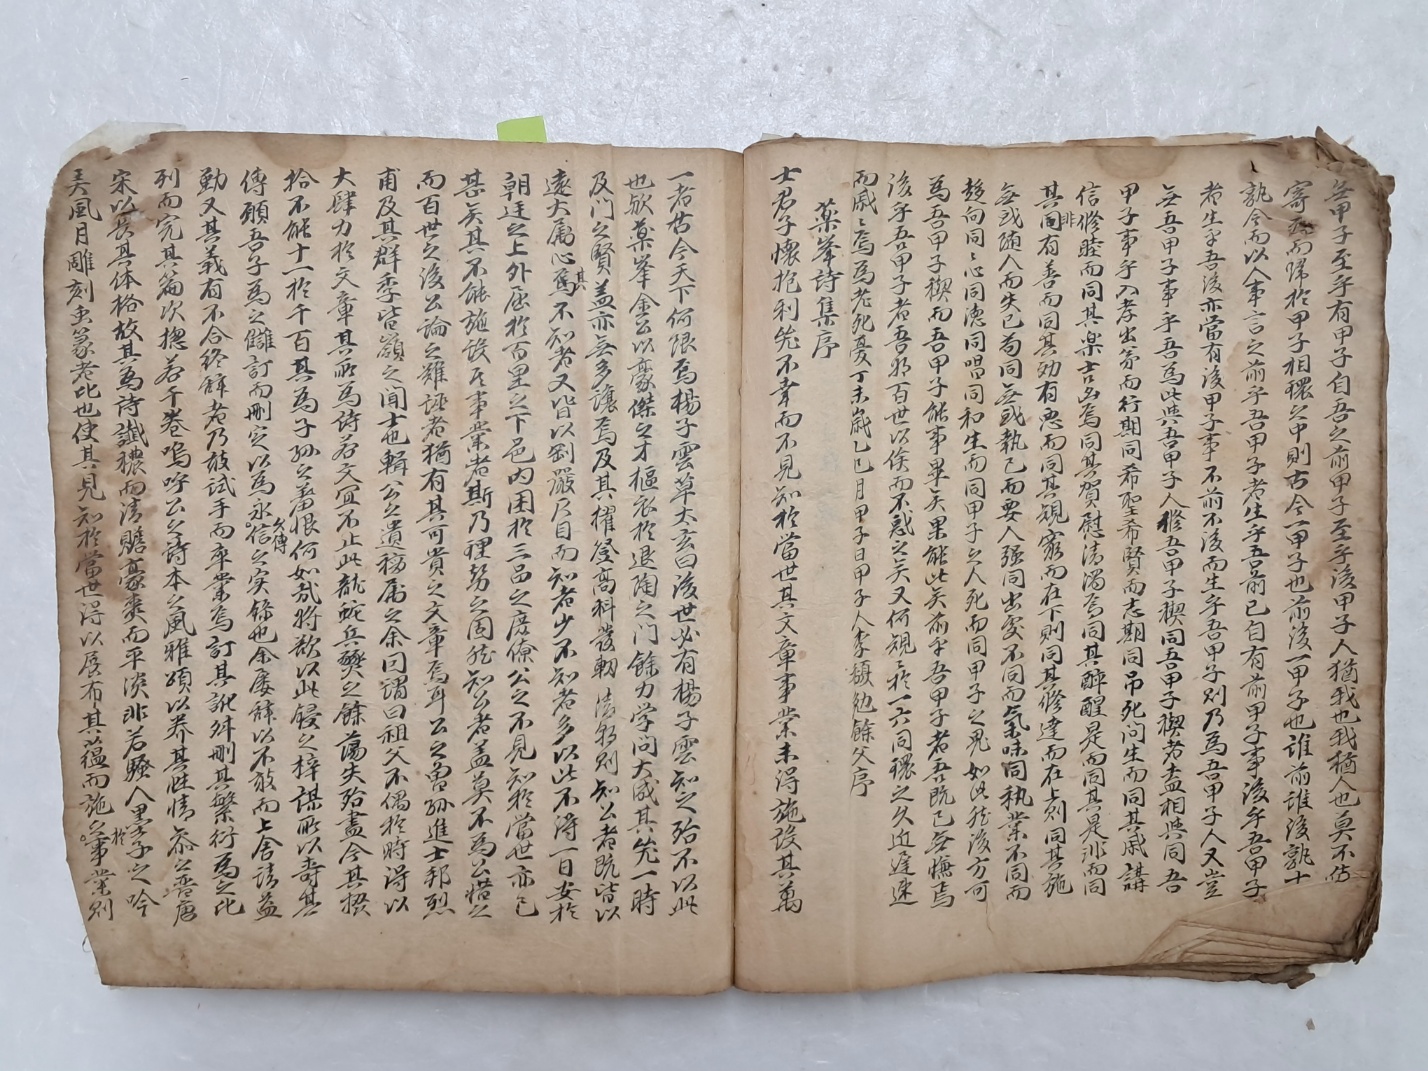 無甲子至乎有甲子自吾之前甲子至乎後甲子人猶我也我猶人也莫不
寄 而歸於甲子相環之甲則古今一甲子也前後一甲子也誰前誰後孰十
孰今而以人事言之前乎吾甲子者生乎吾前已自有前甲子事後乎吾甲子
者生乎吾後亦當有後甲子事不前不後而生乎吾甲子則乃為吾甲子人又豈
無吾甲子事乎吾為此與吾甲子人修吾甲子禊同吾甲子禊者盍相與同吾
甲子事乎入孝出弟而行期同希聖希賢而志期同吊死問生而同其戚講
信修睦而同其樂吉出焉同其賀慰清濁焉同其醉醒是而同其是非而同
其非同有善而同其勸有惡而同其規窮而在下則同其修達而在上則同其施
無或随人而失己苟同無或執己而要人强同出處不同而氣味同執業不同而
趍向同同心同德同唱同和生而同甲子之人死而同甲子之鬼如此然後方可
為吾甲子禊而吾甲子能事畢矣果能此矣前乎吾甲子者吾既已無憮焉
後乎吾甲子者吾邪百世以俟而不惑之矣又何規規於一六同環之久近遲速
而戚戚焉為老死憂丁未歲乙巳月甲子日甲子人李 勉餘父序
藥峯詩集序
士君子懷抱利先不幸而不見知於當世其文章事業未得施設其萬
一者古今天下何限焉楊子雲草太玄曰後世必有楊子雲知之殆不以此
也歟藥峯金公以豪傑之才樞衣於退陶之門餘力学問大成其先一時
及門之賢盖亦無多讓焉及其擢登高科發軔清朝則知公者既皆以
遠大屬心其舊不知者又皆以劉嚴尺目而知者少不知者多以此不得一日安於
朝廷之上外屈於百里之下邑内困於三品之庶僚公之不見知於當世亦已
甚矣其不能施設於事業者斯乃理勢之固然知公者盖莫不為公惜之
而百世之後公論之難誣者猶有其可貴之文章焉耳公之曾孫進士邦烈
甫及其群季皆嶺之聞士也輯公之遺稿属之余因謂曰祖父不偶於時得以
大肆力於文章其所為詩若文宜不止此龍蛇兵燹之餘蕩失殆盡今其掇
拾不能十一於千百其為子孫之羞恨何如哉將欲以此鋟之梓謀所以壽其
傳願吾子為之讎訂而刪定以為永久傳信之实錄也余屡辭以不敢而上舍請益
勤又其義有不合終辭者乃敢試手而卒業焉訂其訛舛刪其繁衍為之比
列而完其篇次摠若干卷嗚呼公之詩本之風雅頌以养其性情参之晋唐
宋以長其体格故其為詩讖穠而清贍豪爽而平淡非若騷人墨子之吟
美風月雕刻虫篆者比也使其見知於當世得以展布其蘊而施於之事業則